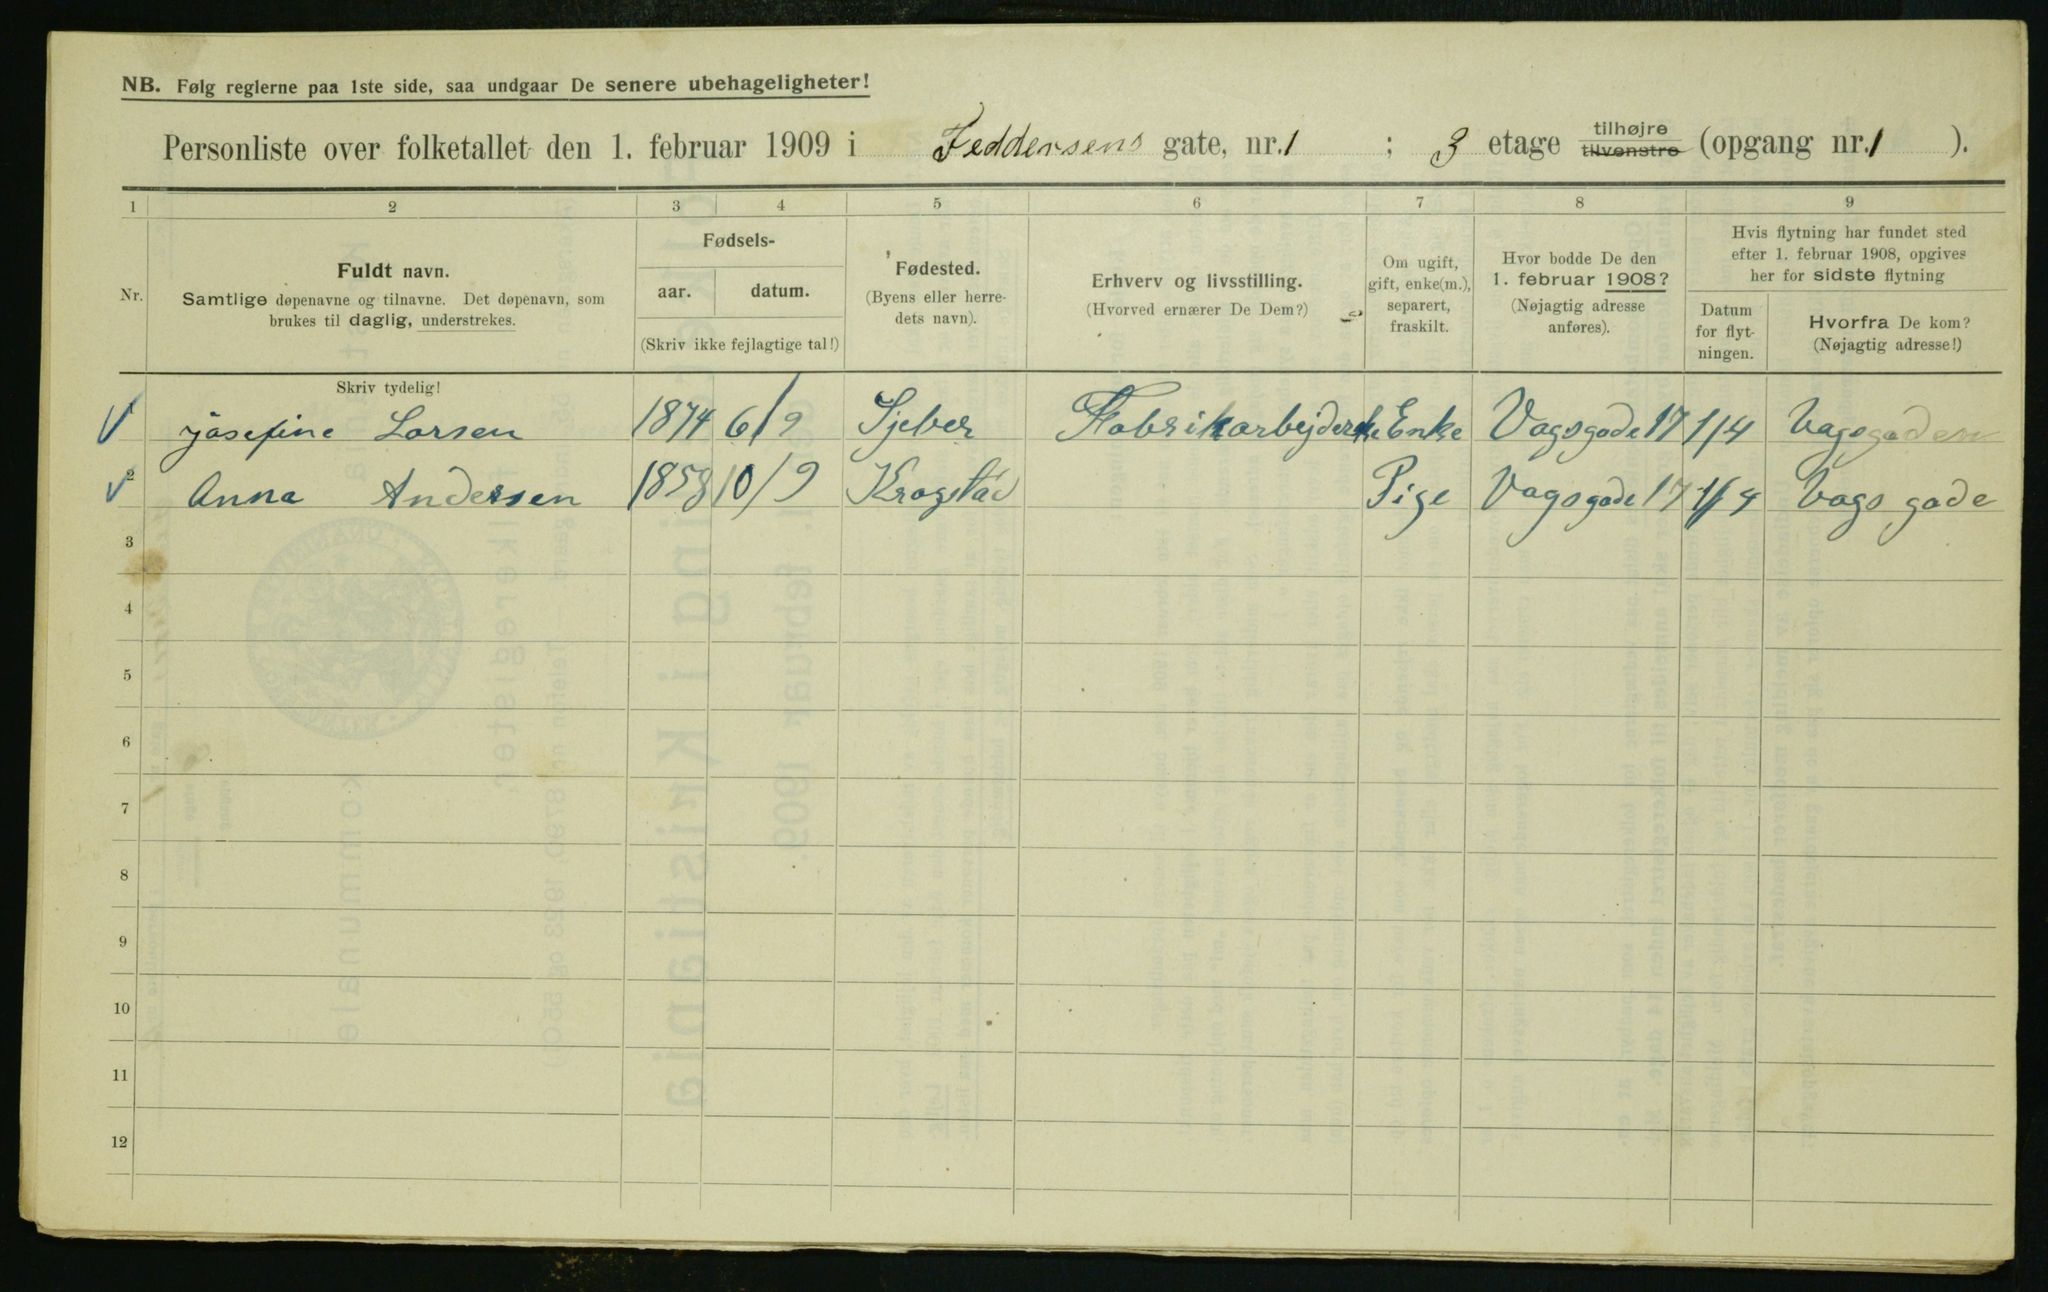 NB. Følg reglerne paa 1ste side, saa undgaar De senere ubehageligheter!
Personliste over folketallet den 1. februar 1909 i Feddersens gate, nr. 1 ; 3 etage tilhøjre tilvenstre (opgang nr. 1 ).
1 2 3 4 5 6 7 8 9
Nr.
Fuldt navn.
Samtlige døpenavne og tilnavne. Det døpenavn, som
brukes til daglig, understrekes.
Fødsels-
aar. datum.
(Skriv ikke fejlagtige tal!)
Fødested.
(Byens eller herre-
dets navn).
Erhverv og livsstilling.
(Hvorved ernærer De Dem?)
Om ugift,
gift, enke(m.),
separert,
fraskilt.
Hvor bodde De den
1. februar 1908?
(Nøjagtig adresse
anføres).
Hvis flytning har fundet sted
efter 1. februar 1908, opgives
her for sidste flytning
Datum
for flyt-
ningen.
Hvorfra De kom?
(Nøjagtig adresse!)
Skriv tydelig!
Josefine Larsen 1874 6/9 Fabrikarbejderske Enke Vogsgade 17 1/4 Vagsgaden
2 Anna Andersen 1858 10/9 Krogstad Pige Vogsgade 17 1/4 Vogs gade
3
4
5
6
7
8
9
10
11
12